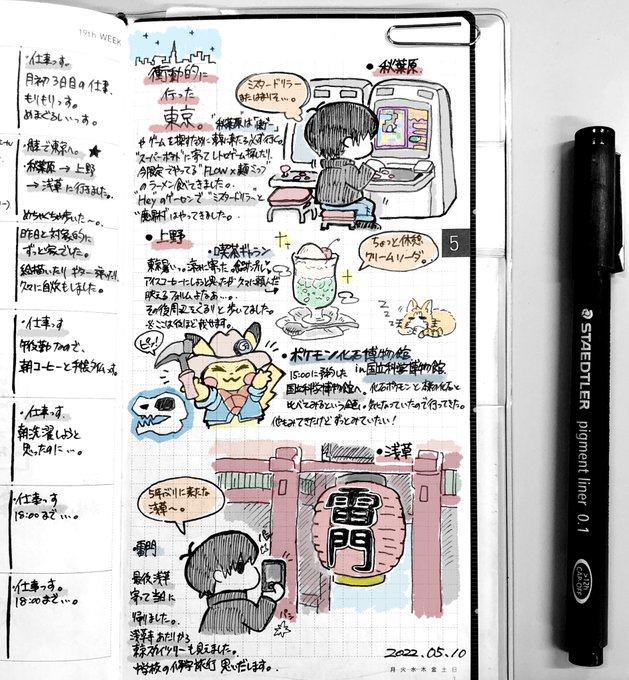 19th WEEK
・仕事っす。
月初3日目の仕事、
もりもりっす。
めまぐるしいっす。
・離で東京へ。★
秋葉原 → 上野
→ 浅草に行きました。
めちゃくちゃ歩いた〜。
昨日と対象的に
ずっと家でした。
絵描いたり ギター弾いたり
久々に自炊もしました。
・仕事っす
午後勤ので、
朝コーヒーと手帳タイムっす。
・仕事っす。
朝洗濯しようと
思ったのに…。
・仕事っす
18:00まで…。
・仕事っす。
18:00まで…。
衝動的に
行った
東京。
・秋葉原
ミスタードリラー
またはまりそ…。
"秋葉原"は
やゲームを探すために東京に来たら必ず行く。
"スーパーポテト"に寄ってレトロゲーム探したり、
今限定でやってる "FLOW×麺ミツ"
のラーメン食べてきました。
"Hey"のゲーセンで "ミスタードリラー"と
はやってきました。
・上野
・ギャラン
ちょっと休憩
クリームソーダ。
東京暑いっ。涼みに寄った
アイスコーヒーにしようと思ったが久々に頼んだ
映えるフォルムよなぁ…。
その後周辺をぐるりと歩いてました。
※ここは後ほど載せます。
ピッ!
・ポケモン化石博物館
in国立科学博物館
15:00に予約した
国立科学博物館へ。化石ポケモンと本物の化石と
比べてみるという企画。気になっていたので行ってきた。
ずっとみていたい!
・浅草
5年ぶりに来たな
浅草〜。
雷門
・雷門
最後浅草
寄って
帰りました。
浅草寺あたりから
東京スカイツリーも見えました。
中学校の修学旅行 思いだします。
パシャ
5
2022.05.10
月火水木金土日
STAEDTLER
pigment liner 0.1
>12h
CAP-OFF